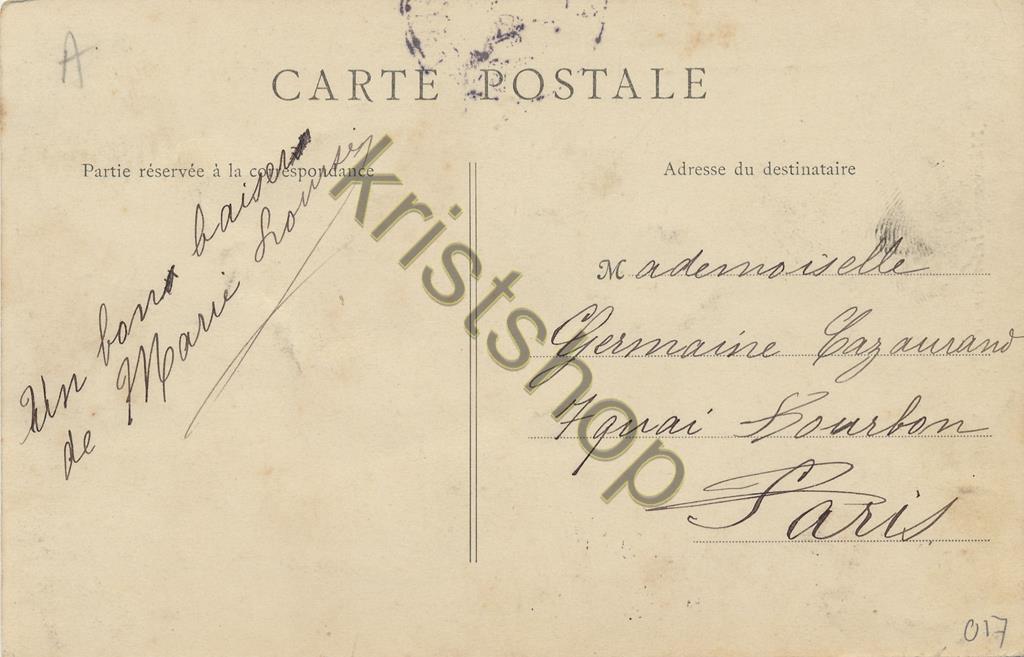 A
CARTE POSTALE
Partie réservée à la correspondance
Adresse du destinataire
Un bon baiser
de Marie Louise
Mademoiselle
Germaine Cazaurand
7 quai Bourbon
Paris
kristshop
017